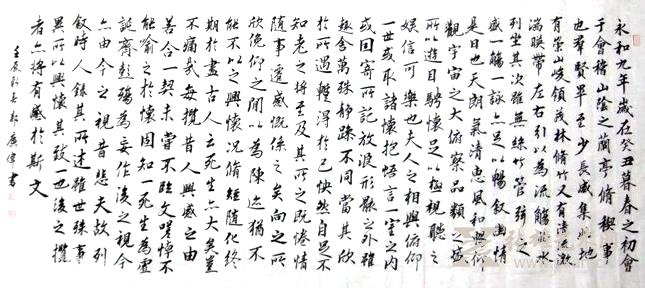 永和九年歲在癸丑暮春之初會
于會稽山陰之蘭亭脩稧事
也羣賢畢至少長咸集此地
有崇山峻領茂林脩竹又有清流激
湍暎帶左右引以為流觴曲水
列坐其次雖無絲竹管弦之
盛一觴一詠亦足以暢敘幽情
是日也天朗氣清惠風和暢仰
觀宇宙之大俯察品類之盛
所以遊目騁懷足以極視聽之
娛信可樂也夫人之相與俯仰
一世或取諸懷抱悟言一室之內
或因寄所託放浪形骸之外雖
趣舍萬殊靜躁不同當其欣
於所遇輙得於己怏然自足不
知老之將至及其所之既惓情
隨事遷感慨係之矣向之所
欣俛仰之閒以為陳迹猶不
能不以之興懷況脩短隨化終
期於盡古人云死生亦大矣豈
不痛哉每攬昔人興感之由
若合一契未嘗不臨文嗟悼不
能喻之於懷固知一死生為虛
誕齊彭殤為妄作後之視今
亦由今之視昔悲夫故列
敘時人錄其所述雖世殊事
異所以興懷其致一也後之攬
者亦將有感於斯文
壬辰春廣偉書